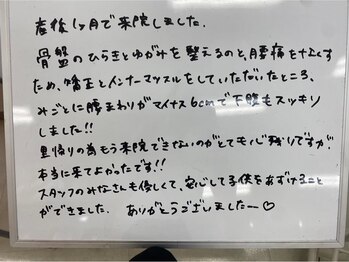 産後1ヶ月で来院しました.
骨盤のひらきとゆがみを整えるのと、腰痛をなくす
ため、矯正とインナーマッスルをしていただいたところ、
みごとに腰まわりがマイナス6cmで下腹もスッキリ
しました!!
里帰りの為もう来院できないのがとても心残りですが
本当に来てよかったです!!
スタッフのみなさんも優しくて、安心して子供をあずけること
ができました. ありがとうございましたー♡